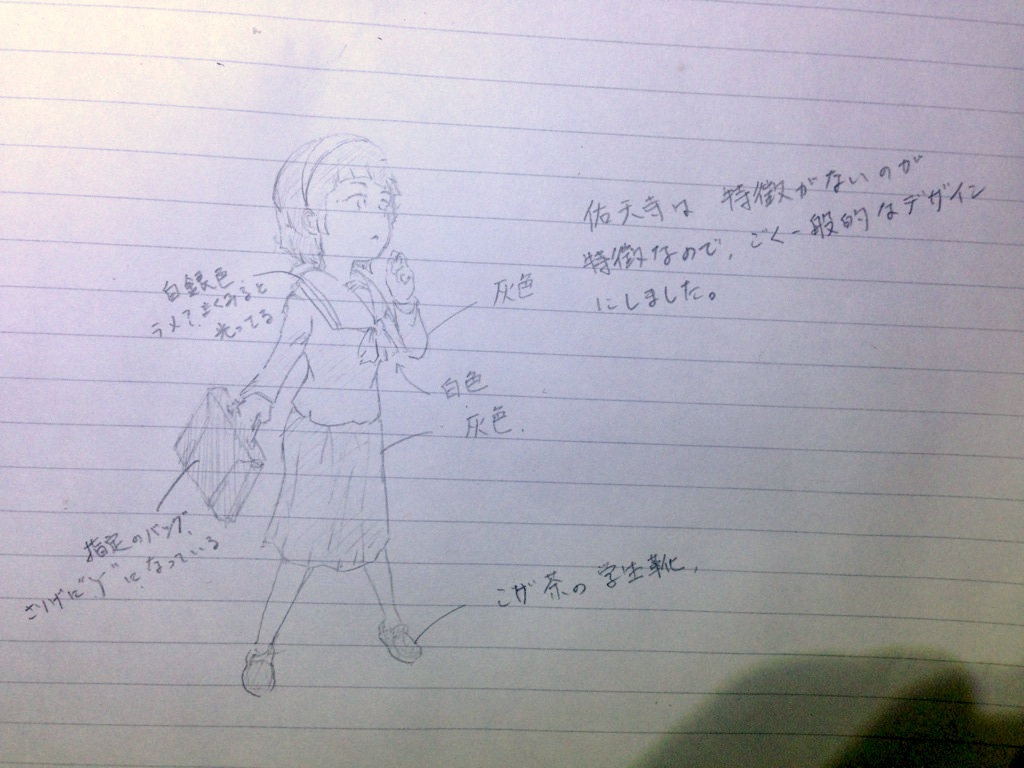 佑天寺は 特徴がないのが
特徴なので、ごく一般的なデザイン
にしました。
白銀色
ラメで、よくみると
光ってる
灰色
白色
灰色.
指定のバッグ、
さりげに"Y"になっている
こげ茶の学生靴.